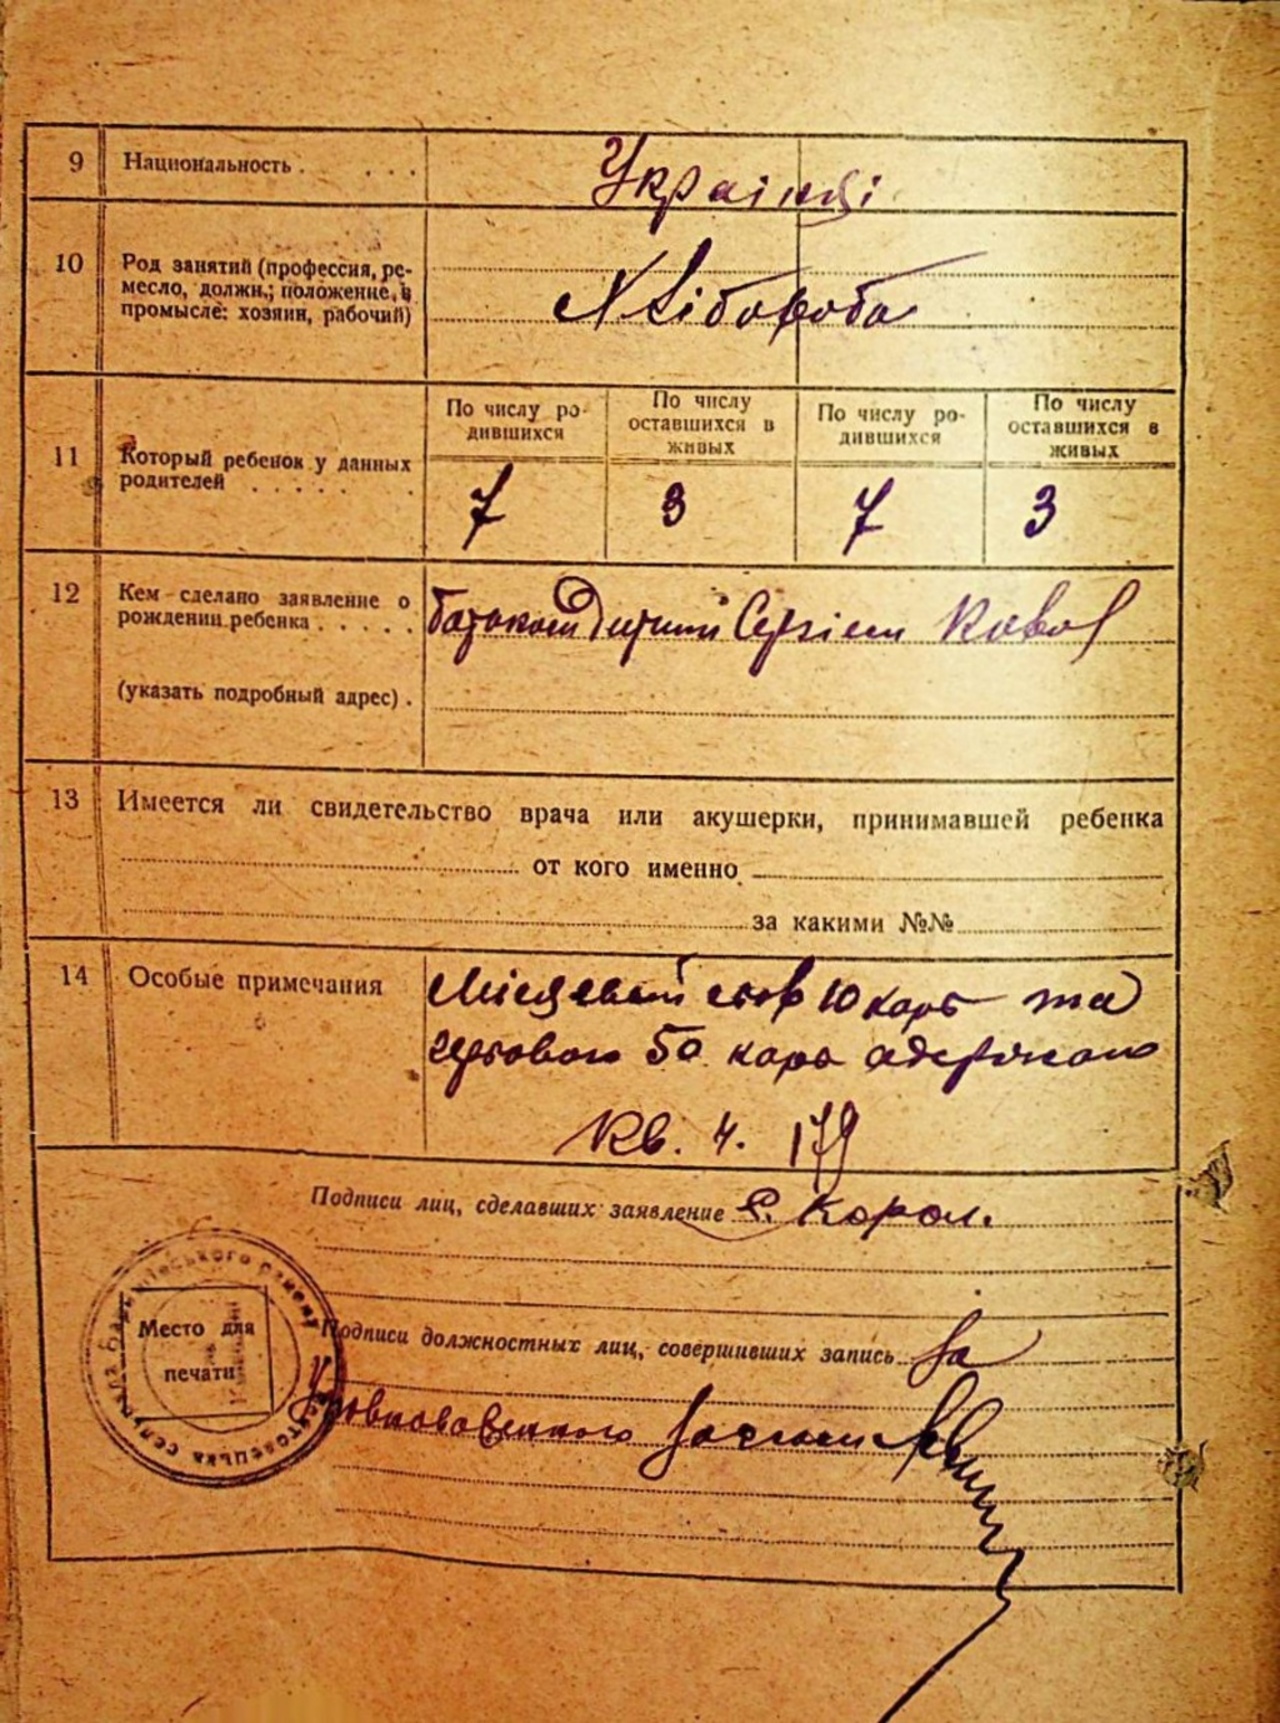 9 Национальность . . . . Українці
10 Род занятий (профессия, ре-
месло, должн.; положение в
промысле: хозяин, рабочий)
Хліборобо
11 Который ребенок у данных
родителей . . . . .
По числу ро-
дившихся
По числу
оставшихся в
живых
По числу ро-
дившихся
По числу
оставшихся в
живых
7 3 7 3
12 Кем сделано заявление о
рождении ребенка . . . . .
батьком Дитини Сергієм
(указать подробный адрес) .
13 Имеется ли свидетельство врача или акушерки, принимавшей ребенка
от кого именно
за какими №№
14 Особые примечания
10 карб та
50 карб одержано
Кв. 4. 179
Подписи лиц, сделавших заявление С. Корол.
Место для
печати
Подписи должностных лиц, совершивших запись За
Уповноваженого